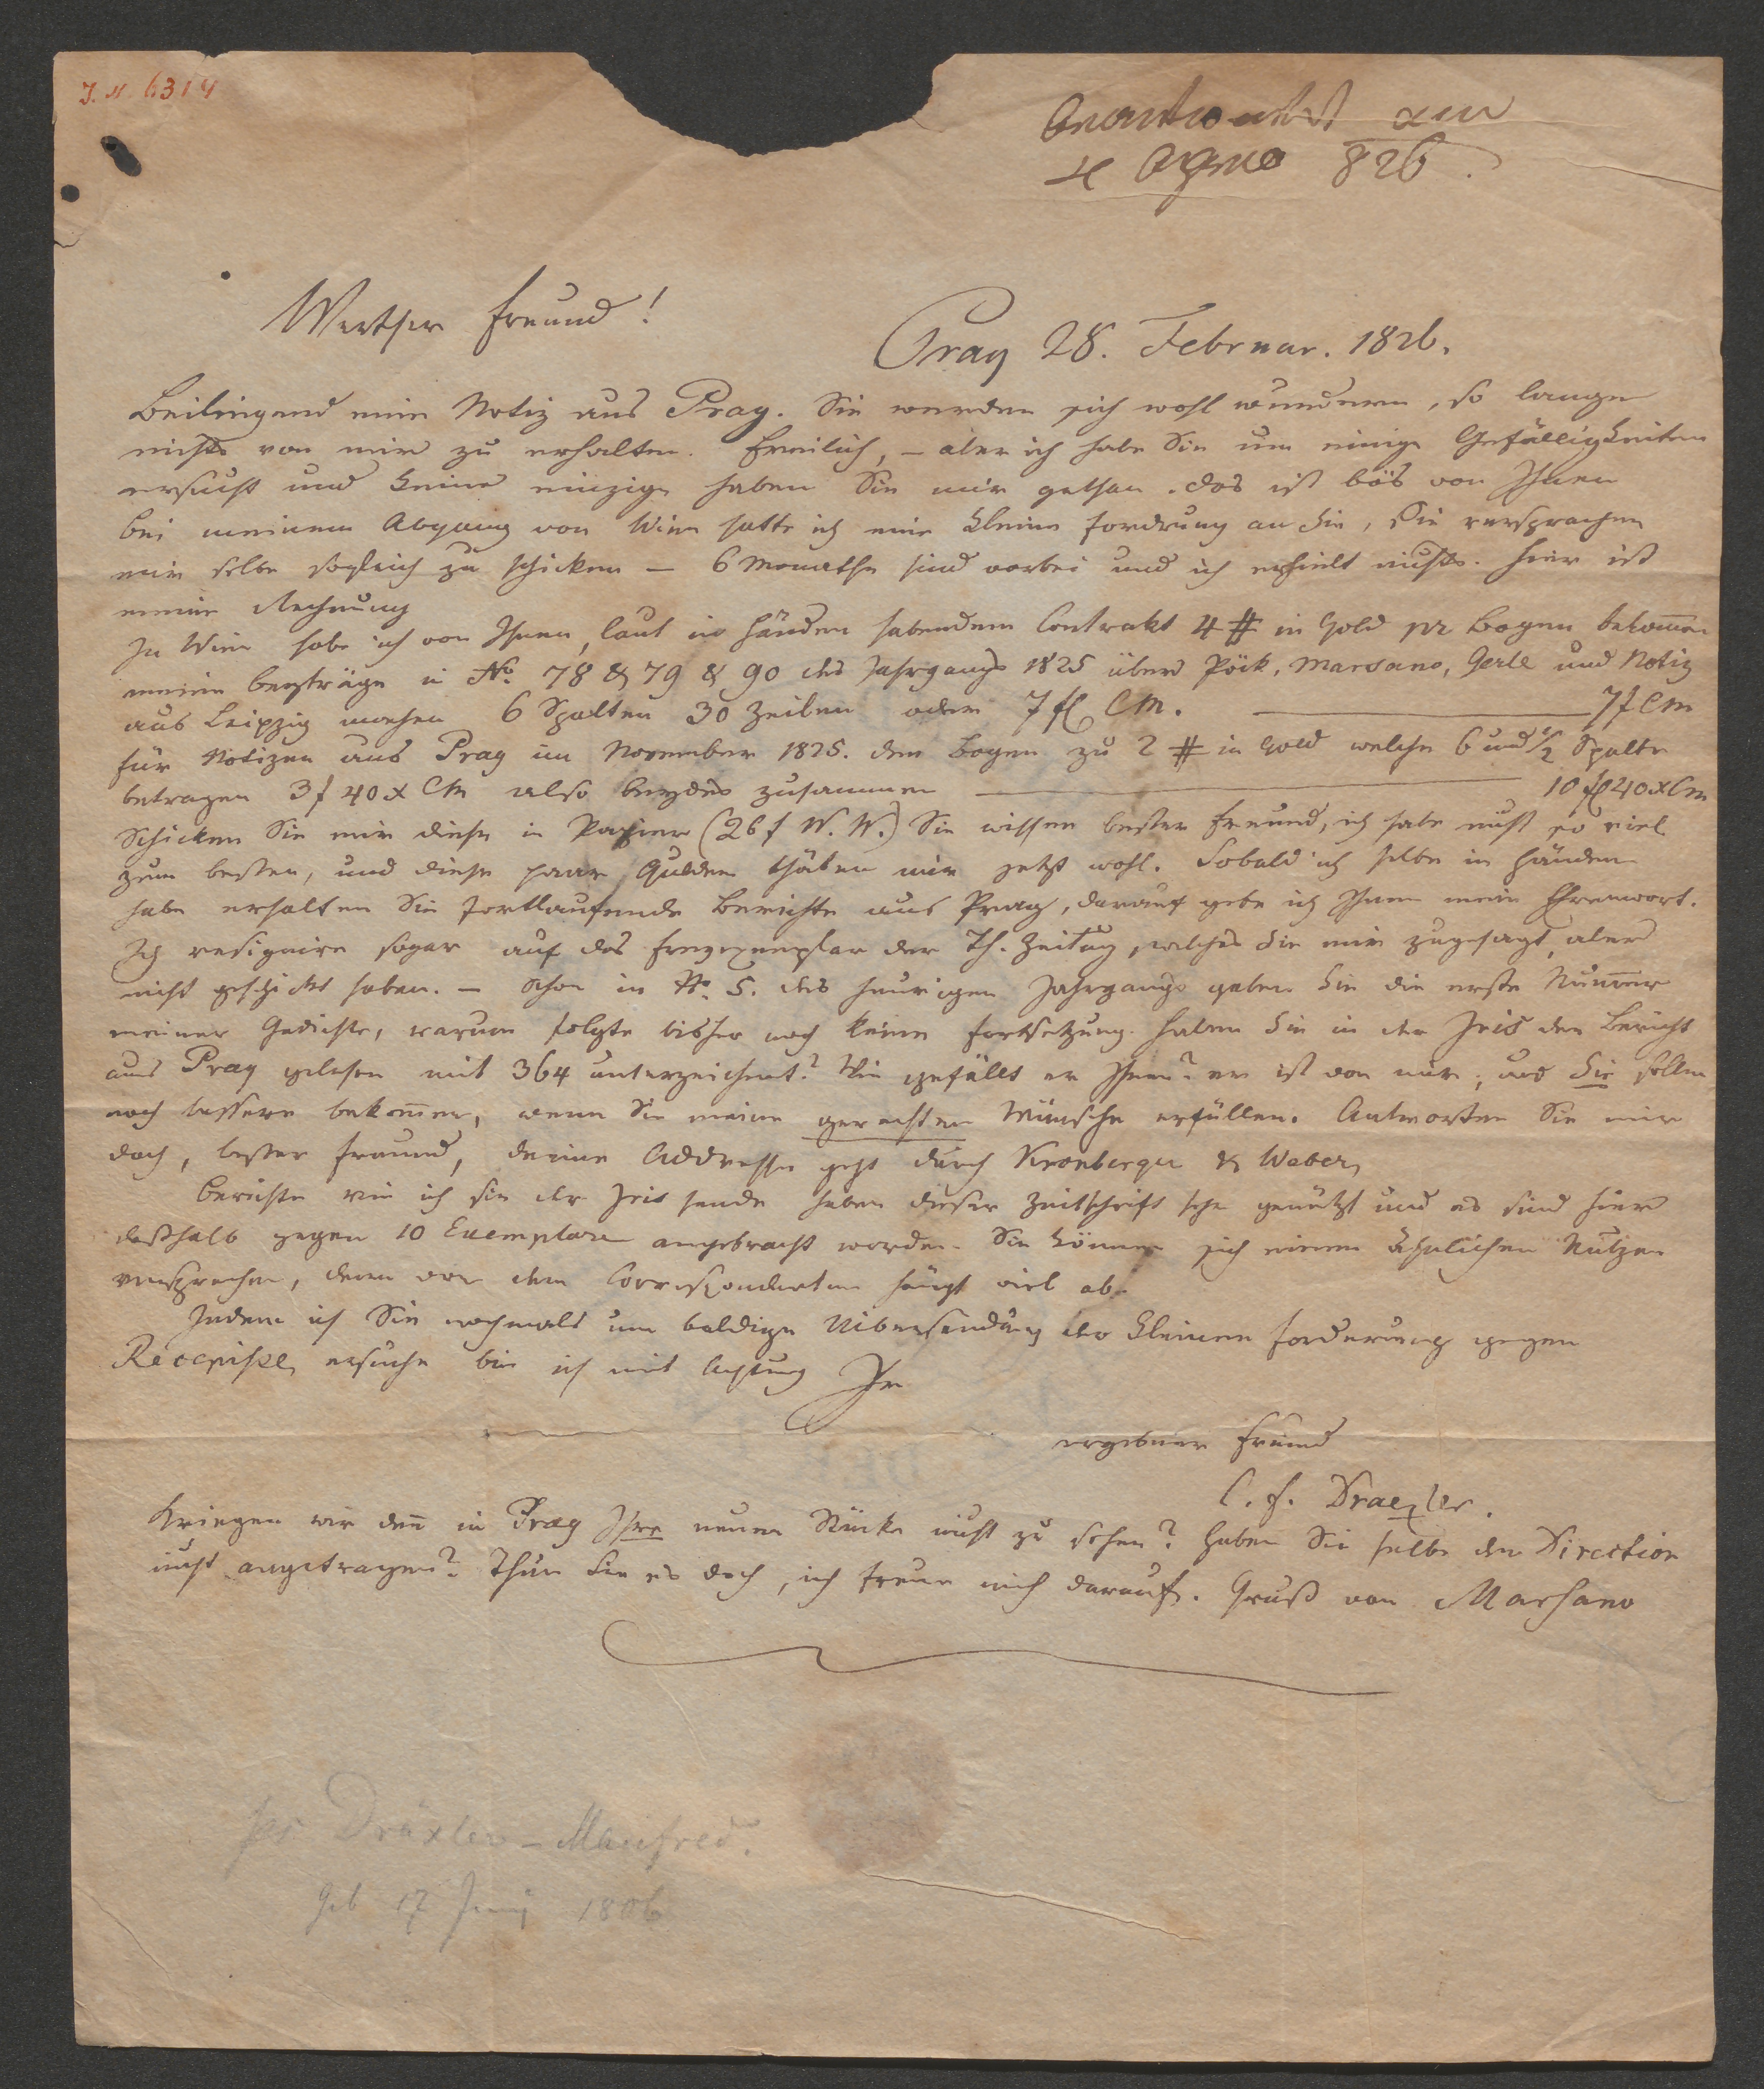 I. N. 6314
Beantwortet am
4 826.
Werther Freund!
Prag 28. Februar. 1826.
Beiliegend eine Notiz aus Prag. Sie werden sich wohl wundern, so lange
nichts von mir zu erhalten. Freilich, – aber ich habe Sie um einige Gefälligkeiten
ersucht und keine einzige haben Sie mir gethan. das ist bös von Ihnen
bei meinem Abgang von Wien hatte ich eine kleine Fordrung an Sie, Sie versprachen
mir selbe sogleich zu schicken – 6 Monathe sind vorbei und ich erhielt nichts. Hier ist
meine Rechnung
In Wien habe ich von Ihnen, laut in Händen habendem Contrakt 4 # in Gold pr Bogen bekom̄en
meine Beyträge in No. 78 & 79 & 90 des Jahrgangs 1825 über Pöck, Marsano, Gerle und Notiz
aus Leipzig machen 6 Spalten 30 Zeilen oder 7 fl CM. 7 f CM
für Notizen aus Prag im November 1825. den Bogen zu 2 # in Gold welche 6 und 1/2 Spalte
betragen 3 f 40 x CM also beydes zusammen 10 fl 40 x CM
Schicken Sie mir diese in Papier (26 f W. W.) Sie wissen bester Freund, ich habe nicht so viel
zum besten, und diese paar Gulden thäten mir jetzt wohl. Sobald ich selbe in Händen
habe erhalten Sie fortlaufende Berichte aus Prag, darauf gebe ich Ihnen mein Ehrenwort.
Ich resignire sogar auf das Freyexemplar der Th. Zeitung, welches Sie mir zugesagt, aber
nicht geschickt haben. – Schon in No. 5. des heurigen Jahrgangs gaben Sie die erste Num̄er
meiner Gedichte, warum folgte bisher noch keine Fortsetzung. Haben Sie in der Iris den Bericht
aus Prag gelesen mit 364 unterzeichnet? Wie gefällt er Ihnen? er ist von mir, und Sie sollen
noch bessere bekom̄en, wenn Sie meine gerechten Wünsche erfüllen. Antworten Sie mir
doch, bester Freund, deine Addresse geht durch Kronberger & Weber,
Berichte wie ich sie der Iris sende haben dieser Zeitschrift sehr genützt und es sind hier
deßhalb gegen 10 Exemplare angebracht worden. Sie können sich einen ähnlichen Nutzen
versprechen, denn von dem Correspondenten hängt viel ab.
Indem ich Sie nochmals um baldige Uibersendung der kleinen Forderung gegen
Recepisse, ersuche bin ich mit Achtung Ihr
ergebener Freund
C. F. Draexler.
Kriegen wir den̄ in Prag Ihre neuen Stücke nicht zu sehen? Haben Sie selbe der Direction
nicht angetragen? Thun Sie es doch, ich freue mich darauf. Gruß von Marsano
Dräxler-Manfred.
geb 17 Juni 1806